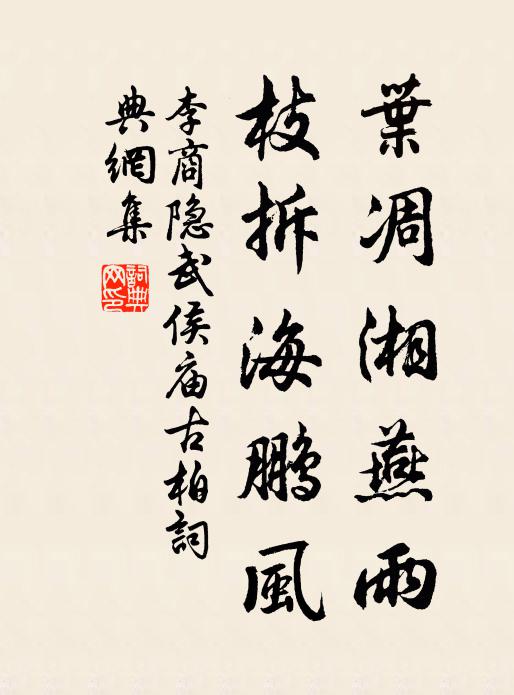 葉凋湘燕雨
枝拆海鵬風
李商隐武侯庙古柏詞
典網集
詞典网印